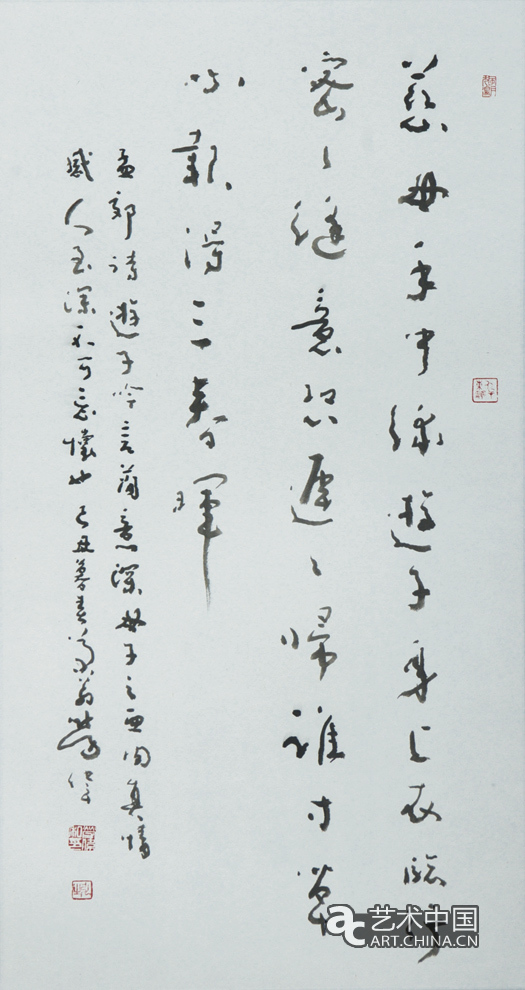 慈母手中線遊子身上衣臨行
密〻縫意恐遲〻歸誰寸草
心報得三春暉
孟郊詩遊子吟言簡意深母子之間真情
感人至深不可忘懷也己丑暮春
ac 艺术中国
ART.CHINA.CN